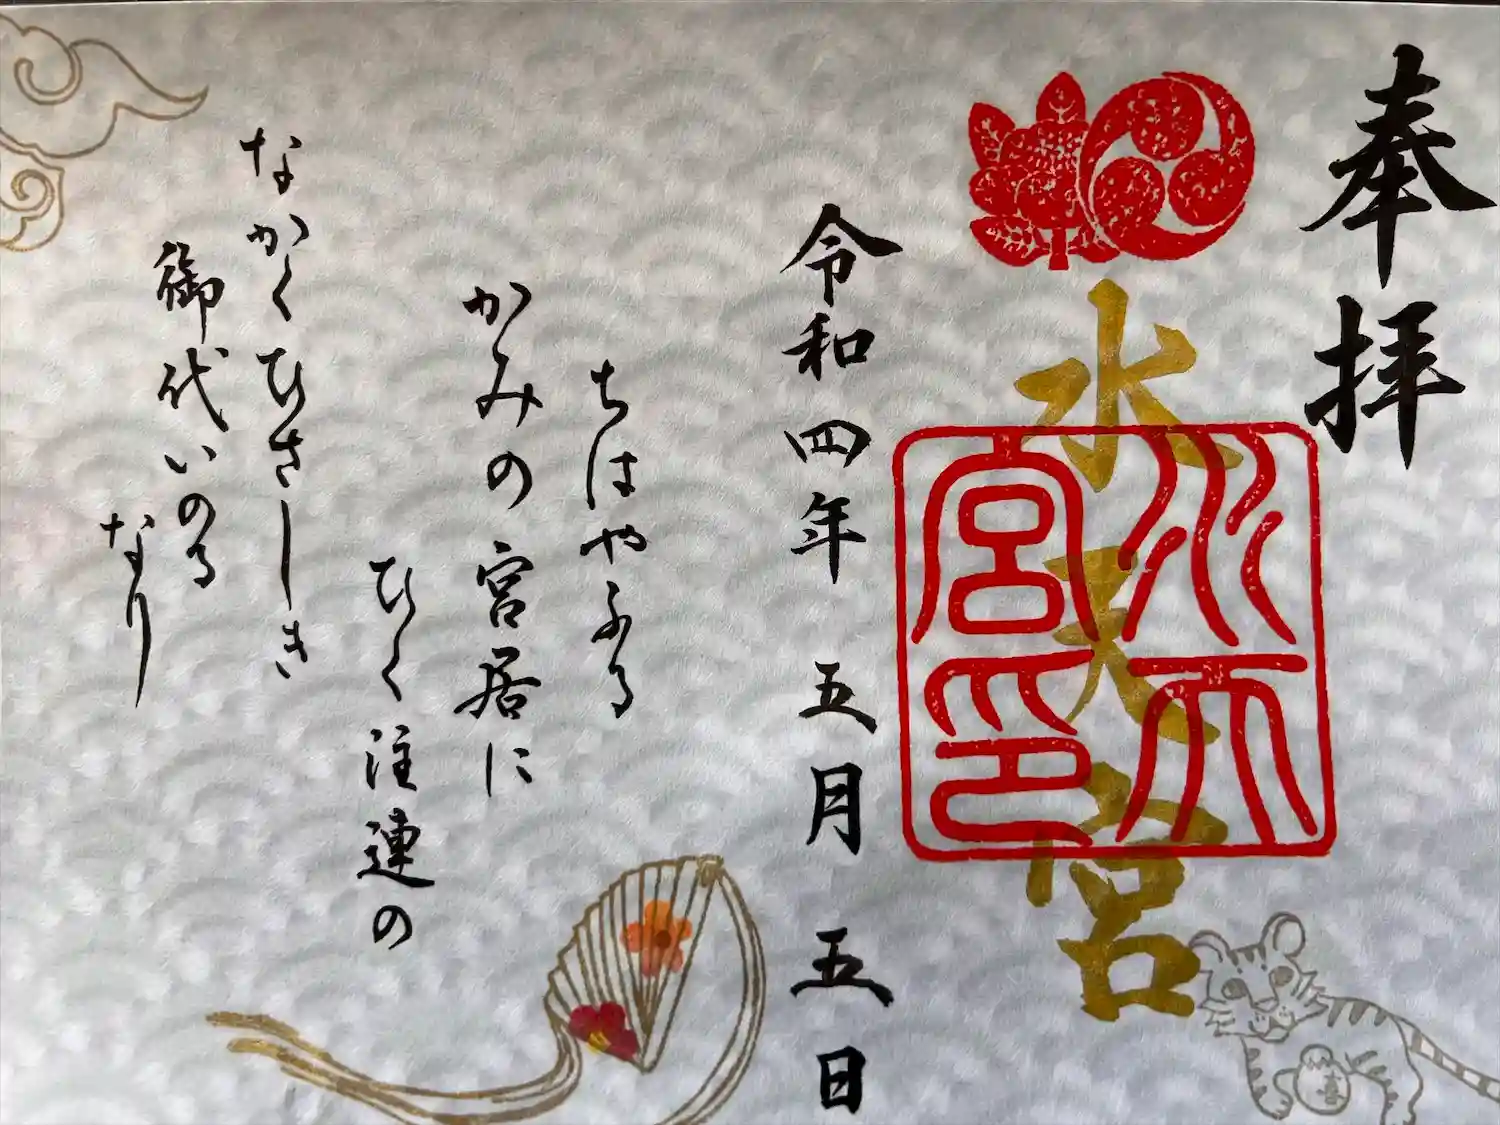 奉拝
水天宮
水天宮印
令和四年 五月 五日
ちはやふる
かみの宮居に
ひく注連の
なかくひさしき
御代いのる
なり
喜